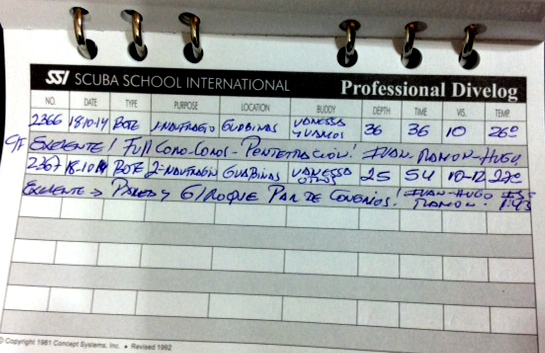 SSI SCUBA SCHOOL INTERNATIONAL Professional Divelog
NO. DATE TYPE PURPOSE LOCATION BUDDY DEPTH TIME VIS. TEMP.
2366 18-10-14 BOTE 1-NAUFRAGIO GUABINAS VANESSA 36 36 10 26º
EXELENTE! FULL IVAN-RAMON-HUGO
2367 18-10-14 BOTE 2-NAUFRAGIO GUABINAS VANESSA OTROS 25 54 10-12 27º
EXELENTE → PARED Y PAR DE CONEJOS! IVAN-HUGO
RAMON. 1:43
© Copyright 1981 Concept Systems, Inc. • Revised 1992